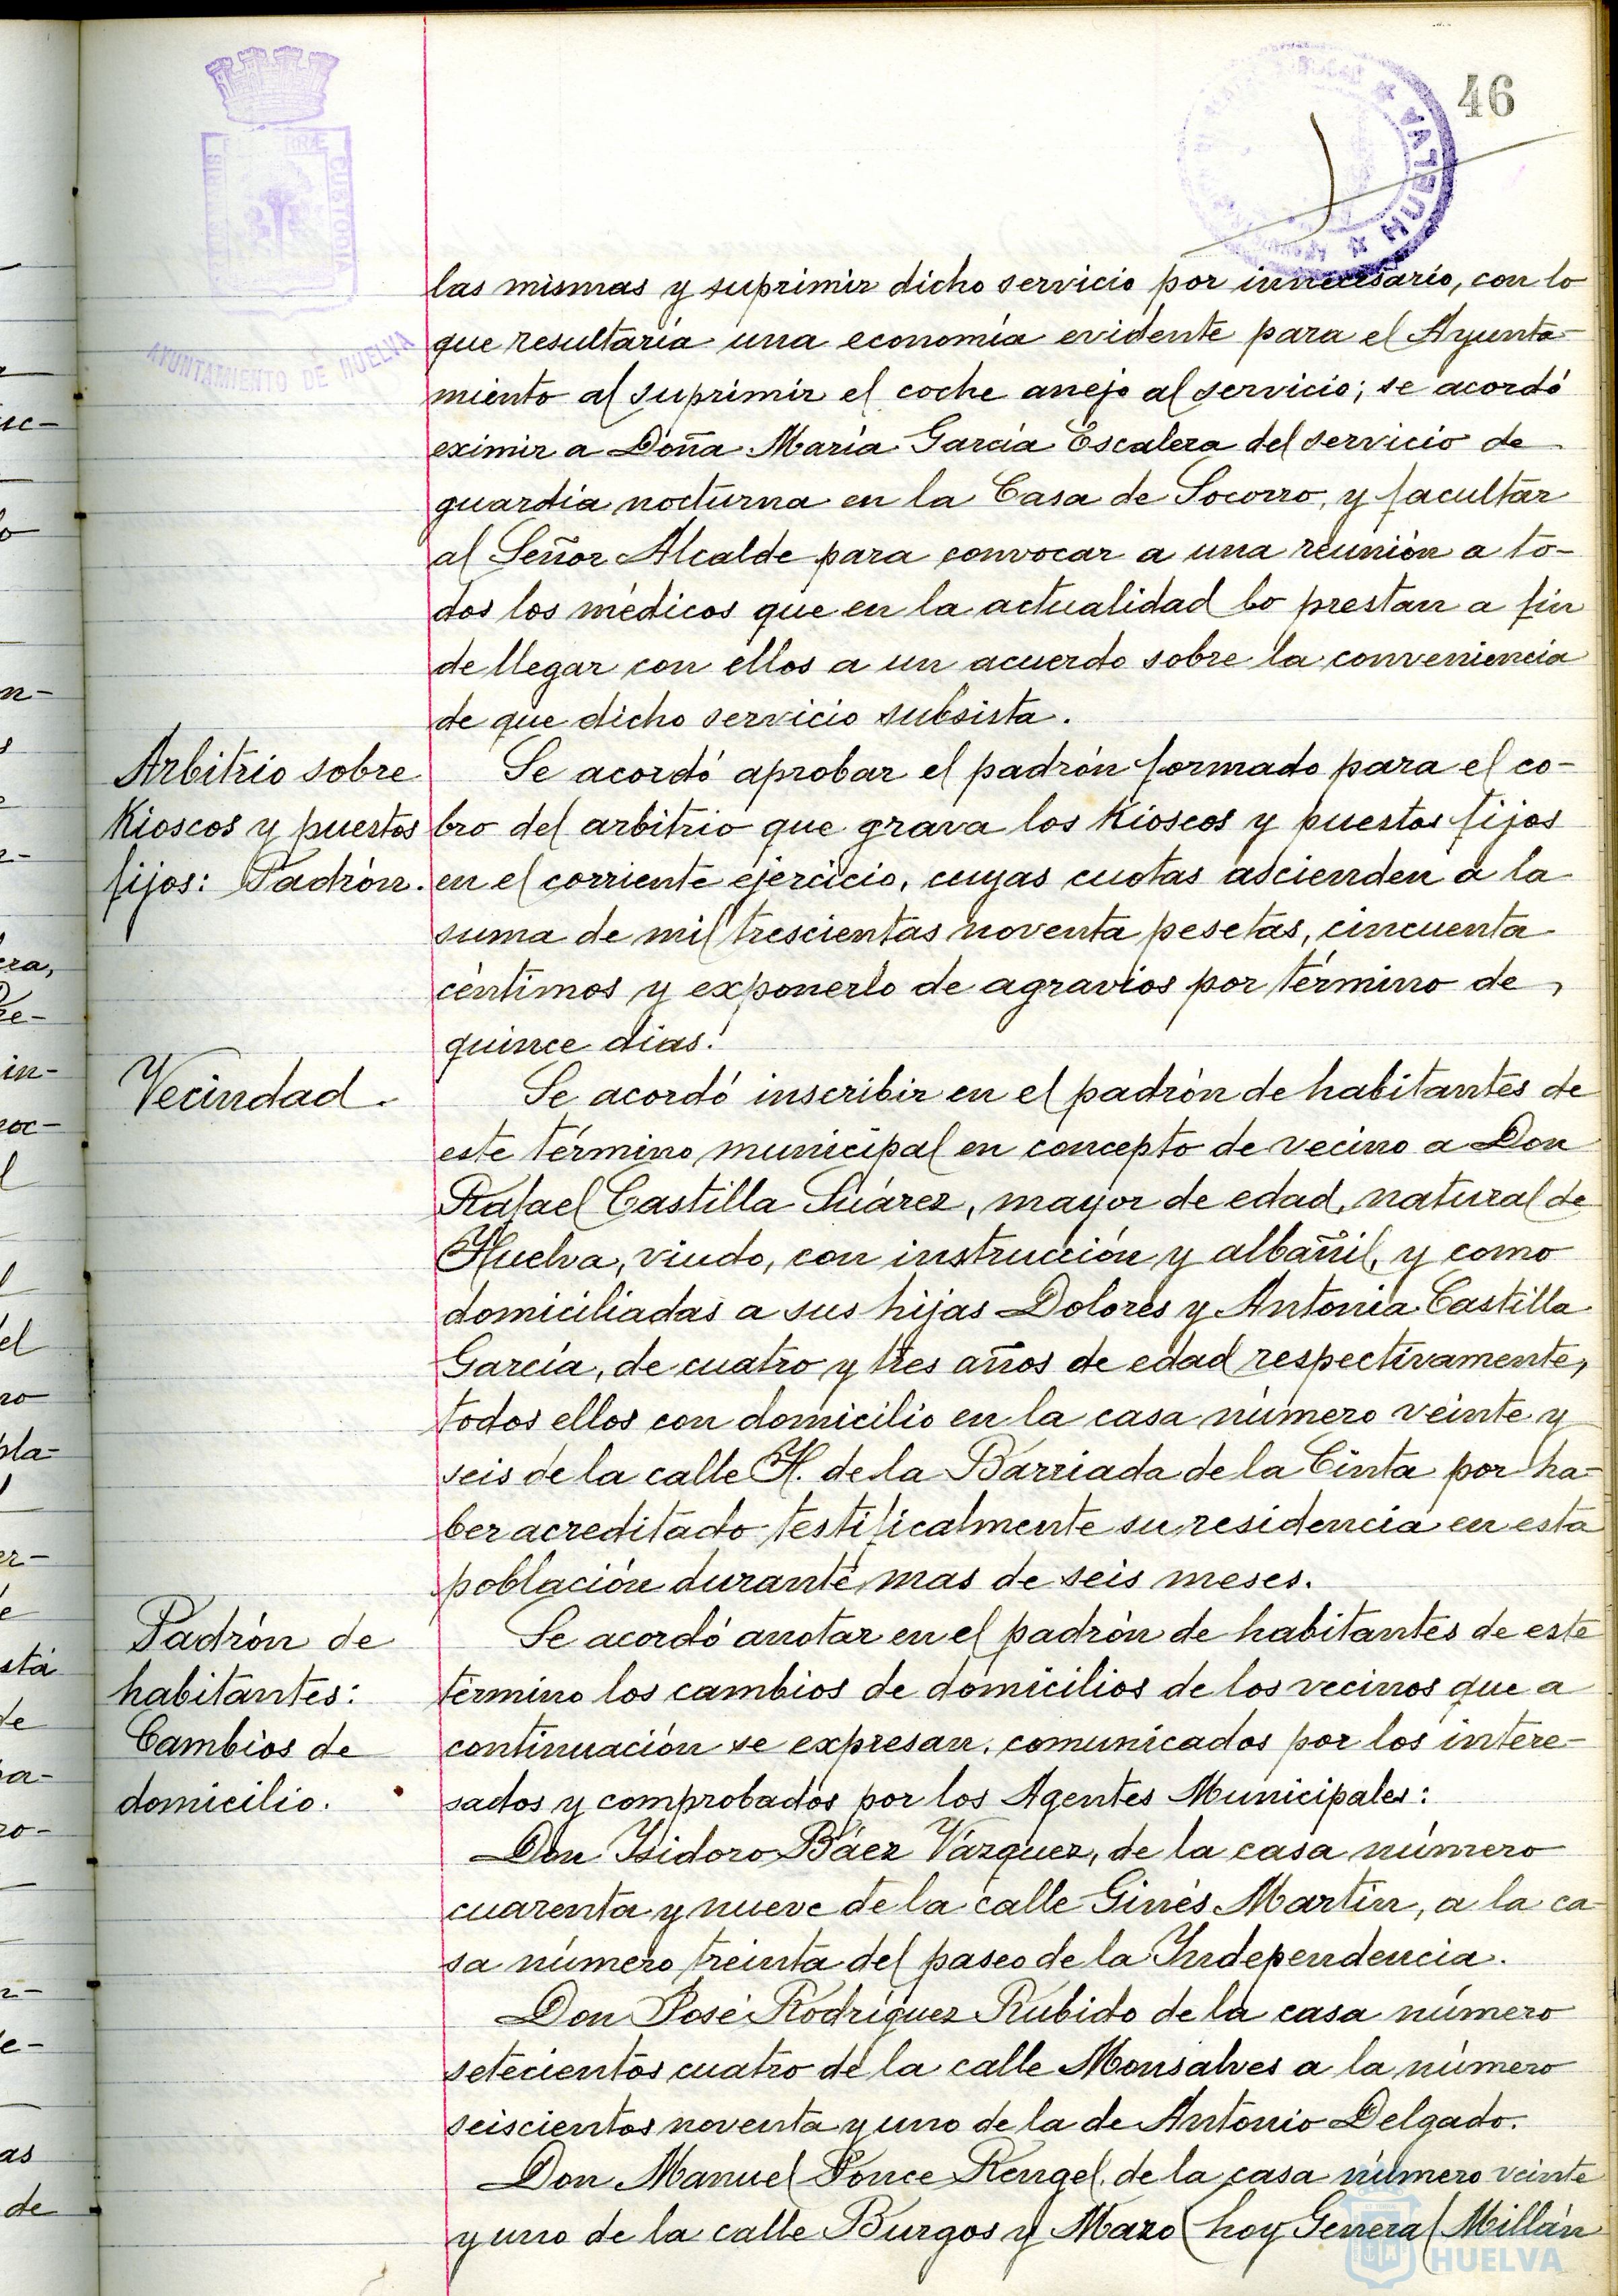 46
HUELVA
AYUNTAMIENTO DE HUELVA
CUSTODIA
las mismas y suprimir dicho servicio por innecesario, con lo
que resultaría una economía evidente para el Ayunta-
miento al suprimir el coche anejo al servicio; se acordó
eximir a Doña María García Escalera del servicio de
guardia nocturna en la Casa de Socorro, y facultar
al Señor Alcalde para convocar a una reunión a to-
dos los médicos que en la actualidad lo prestan a fin
de llegar con ellos a un acuerdo sobre la conveniencia
de que dicho servicio subsista.
Arbitrio sobre
Kioscos y puestos
fijos: Padrón.
Se acordó aprobar el padrón formado para el co-
bro del arbitrio que grava los Kioscos y puestos fijos
en el corriente ejercicio, cuyas cuotas ascienden a la
suma de mil trescientas noventa pesetas, cincuenta
céntimos y exponerlo de agravios por término de
quince dias.
Vecindad.
Se acordó inscribir en el padrón de habitantes de
este término municipal en concepto de vecino a Don
Rafael Castilla Suárez, mayor de edad, natural de
Huelva, viudo, con instrucción y albañil, y como
domiciliadas a sus hijas Dolores y Antonia Castilla
García, de cuatro y tres años de edad respectivamente,
todos ellos con domicilio en la casa número veinte y
seis de la calle H. de la Barriada de la Cinta por ha-
ber acreditado testificalmente su residencia en esta
población durante mas de seis meses.
Padrón de
habitantes:
Cambios de
domicilio.
Se acordó anotar en el padrón de habitantes de este
término los cambios de domicilios de los vecinos que a
continuación se expresan, comunicados por los intere-
sados y comprobados por los Agentes Municipales:
Don Isidoro Báez Vázquez, de la casa número
cuarenta y nueve de la calle Ginés Martín, a la ca-
sa número treinta del paseo de la Independencia.
Don José Rodríguez Rubido de la casa número
setecientos cuatro de la calle Monsalves a la número
seiscientos noventa y uno de la de Antonio Delgado.
Don Manuel Ponce Rengel, de la casa número veinte
y uno de la calle Burgos y Mazo (hoy General Millán
HUELVA